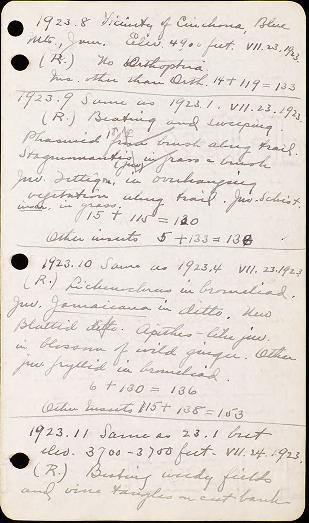 1923.8 Vicinity of Cinchona, Blue
Mts., Jam. Elev. 4900 feet. VII.23.1923.
(R.) No Orthoptera.
Ins. other than Orth. 14 + 119 = 133
1923.9 Same as 1923.1. VII.23.1923
(R.) Beating and sweeping.
Phasmid from brush along trail.
Stagmomantis (juv) in grass & brush
juv. Tettigon. in overhanging
vegetation along trail. Juv. Schist.
in grass.
15 + 115 = 130
Other insects 5 + 133 = 138
1923.10 Same as 1923.4 VII.23.1923
(R.) in bromeliad.
Juv. Jamaicana in ditto. New
Blattid ditto. like juv.
in blossom of wild ginger. Other
juv gryllid in bromeliad.
6 + 130 = 136
Other Insects 15 + 138 = 153
1923.11 Same as 23.1 but
elev. 3700-3700 feet. VII.24.1923.
(R.) Beating weedy fields
and vine tangles on cut bank